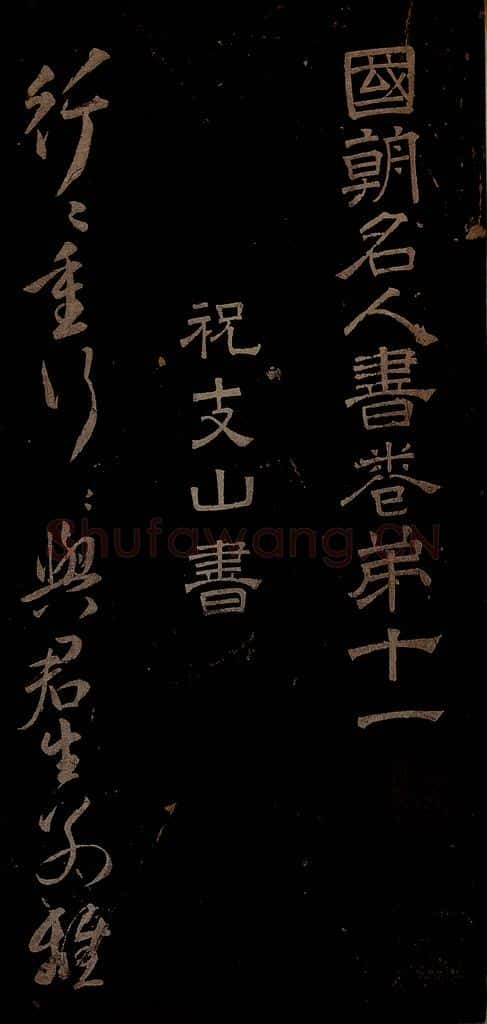 國朝名人書卷弟十一
祝支山書
行〻重行〻與君生別離
Shufawang.CN